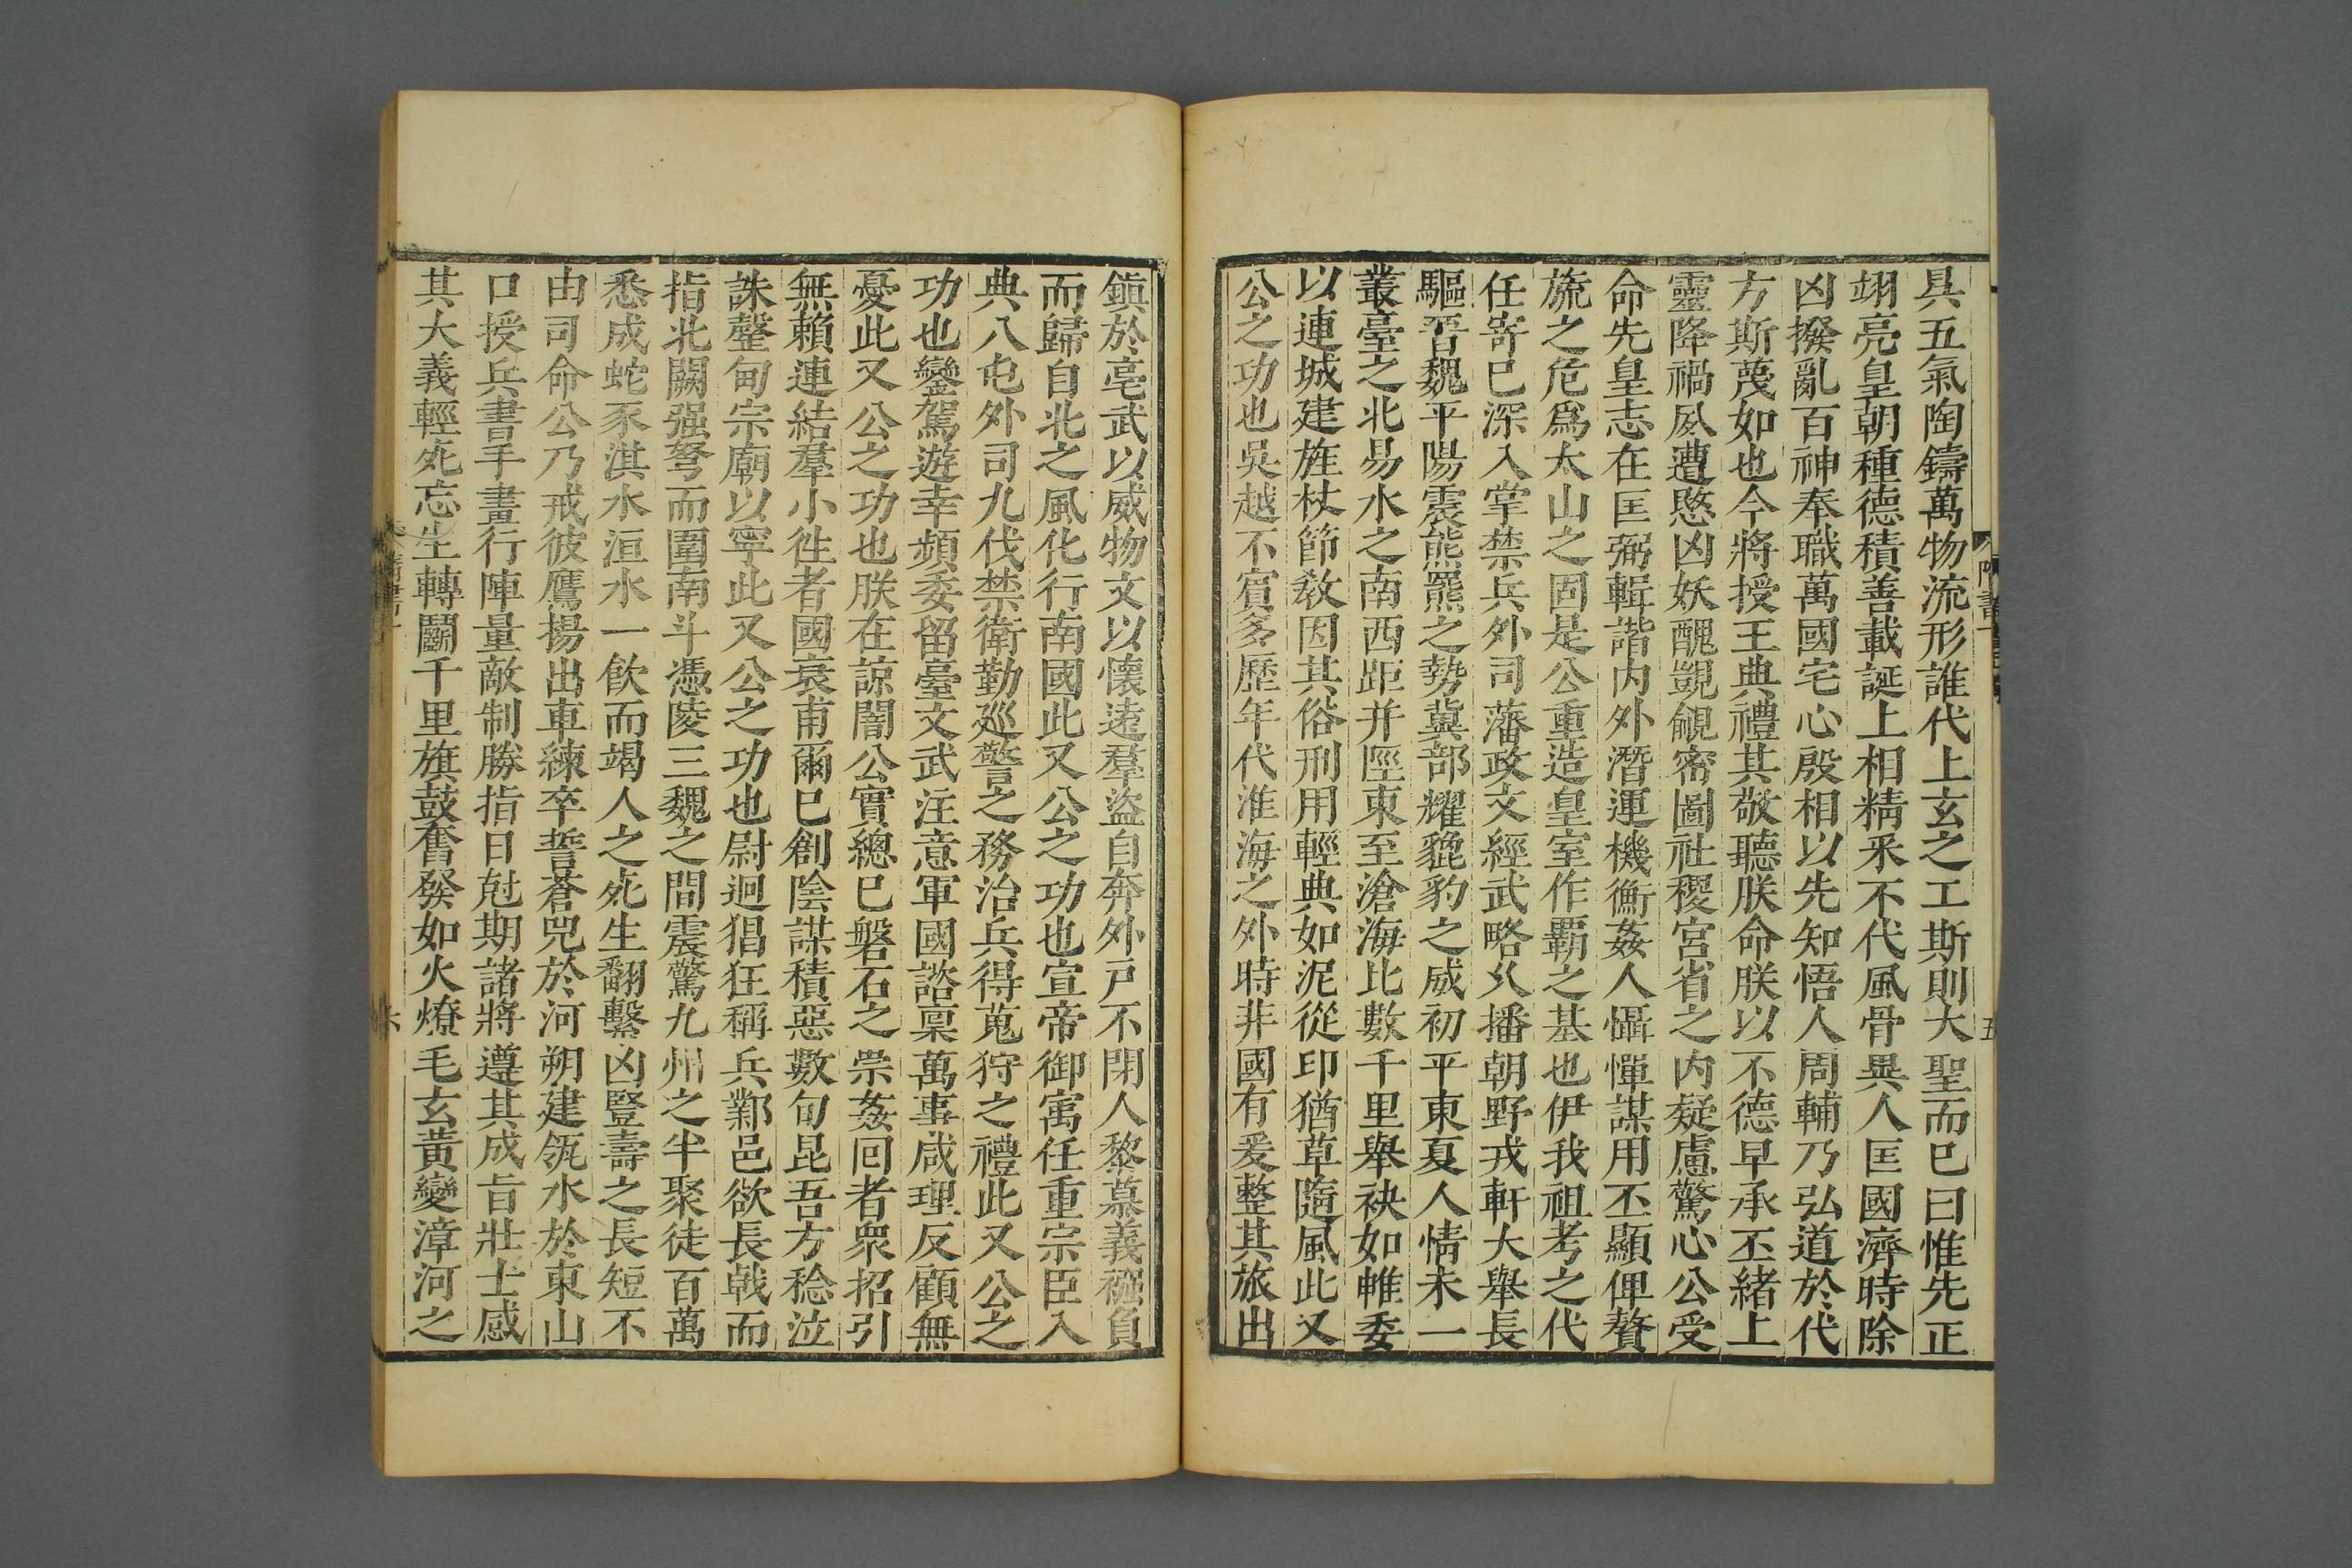 具五氣陶鑄萬物流形誰代上玄之工斯則大聖而已曰惟先正
翊亮皇朝種德積善載誕上相精釆不代風骨異人匡國濟時除
凶撥亂百神奉職萬國宅心殷相以先知悟人周輔乃弘道於代
方斯蔑如也今將授王典禮其敬聽朕命朕以不德早承丕緒上
靈降禍夙遭愍凶妖醜覬覦密圖社稷宮省之内疑慮驚心公受
命先皇志在匡弼輯諧内外潛運機衡姦人懾憚謀用丕顯俾贅
旒之危爲太山之固是公重造皇室作覇之基也伊我祖考之代
任寄已深入掌禁兵外司藩政文經武略久播朝野戎軒大舉長
驅晋魏平陽震熊羆之勢冀部耀貔豹之威初平東夏人情未一
叢臺之北易水之南西距并陘東至滄海比數千里舉袂如帷委
以連城建旌杖節敎因其俗刑用輕典如泥從印猶草隨風此又
公之功也吳越不賔多歷年代淮海之外時非國有爰整其旅出
鎭於亳武以威物文以懷遠羣盜自奔外戸不閉人黎慕義襁負
而歸自北之風化行南國此又公之功也宣帝御寓任重宗臣入
典八屯外司九伐禁衛勤巡警之務治兵得蒐狩之禮此又公之
功也鑾駕遊幸頻委留臺文武注意軍國諮稟萬事咸理反顧無
憂此又公之功也朕在諒闇公實總已磐石之祟姦回者衆招引
無賴連結羣小徃者國衰甫爾已創陰謀積惡數旬昆吾方稔泣
誅罄甸宗廟以寧此又公之功也尉迥猖狂稱兵鄴邑欲長戟而
指北闕强弩而圍南斗憑陵三魏之間震驚九州之半聚徒百萬
悉成蛇豕淇水洹水一飲而竭人之死生翻繫凶豎壽之長短不
由司命公乃戒彼鷹揚出車練卒誓蒼兕於河朔建瓴水於東山
口授兵書手畫行陣量敵制勝指日尅期諸將遵其成旨壯士感
其大義輕死忘生轉鬭千里旗鼓奮發如火燎毛玄黃變漳河之